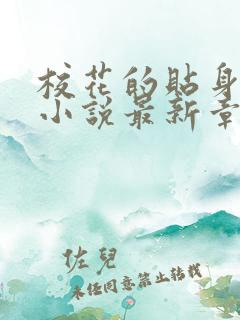 校花的貼身
小說最新章
佐兒
未經同意禁止轉載